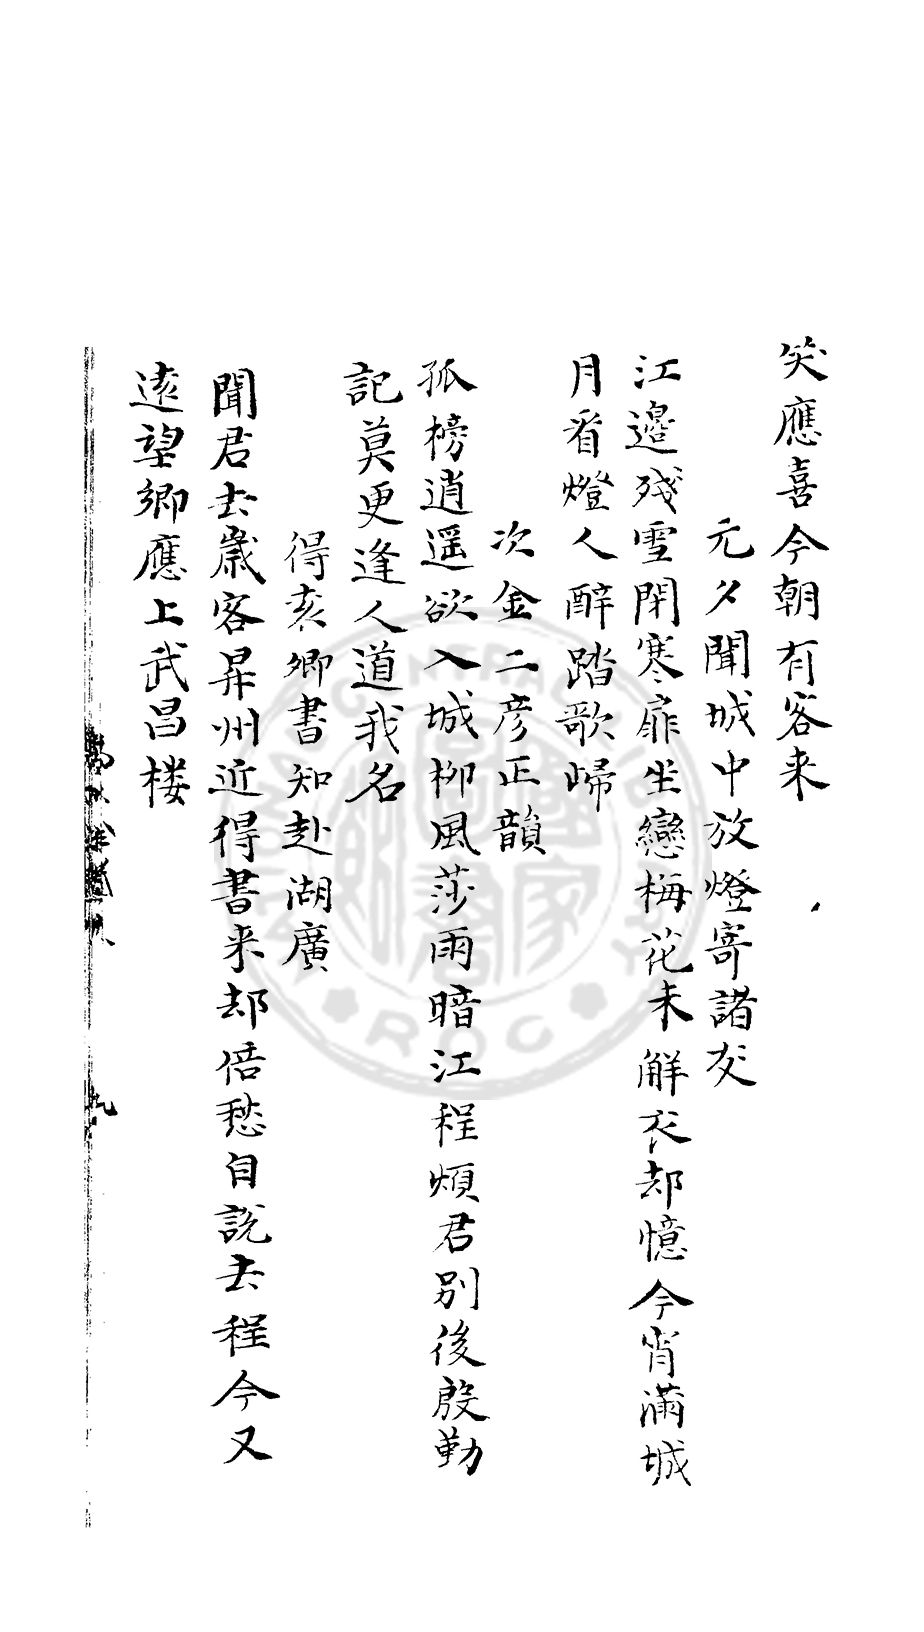 笑應喜今朝有客来
元夕聞城中放燈寄諸友
江邉残雪閉寒扉坐戀梅花未解衣却憶今宵滿城
月看燈人醉踏歌歸
次金二彦正韻
孤榜逍遥欲入城柳風莎雨暗江程煩君別後殷勤
記莫更逢人道我名
得亥卿書知赴湖廣
聞君去歳客昇州近得書来却倍愁自説去程今又
遠望鄉應上武昌楼
九